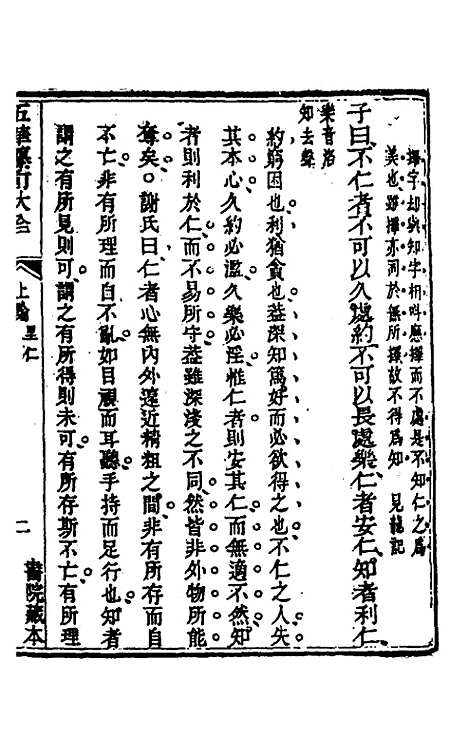 擇字却與知字相呌應擇而不處是不知仁之爲
美也雖擇亦同於無所擇故不得爲知 見龍記
子曰不仁者不可以久處約不可以長處樂仁者安仁知者利仁
樂音洛
知去聲
約窮困也利猶貪也葢深知篤好而必欲得之也不仁之人失
其本心久約必濫久樂必淫惟仁者則安其仁而無適不然知
者則利於仁而不易所守葢雖深淺之不同然皆非外物所能
奪矣謝氏曰仁者心無內外遠近精粗之間非有所存而自
不亡非有所理而自不亂如目視而耳聽手持而足行也知者
謂之有所見則可謂之有所得則未可有所存斯不亡有所理
五華纂訂大全
上論 里仁
二
書院藏本